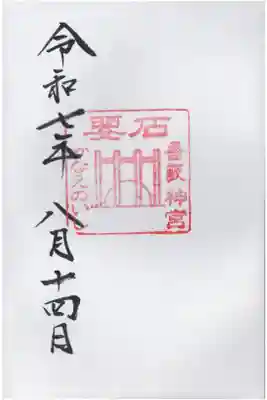 要石
香取神宮
かなめのいし
令和七年八月十四日